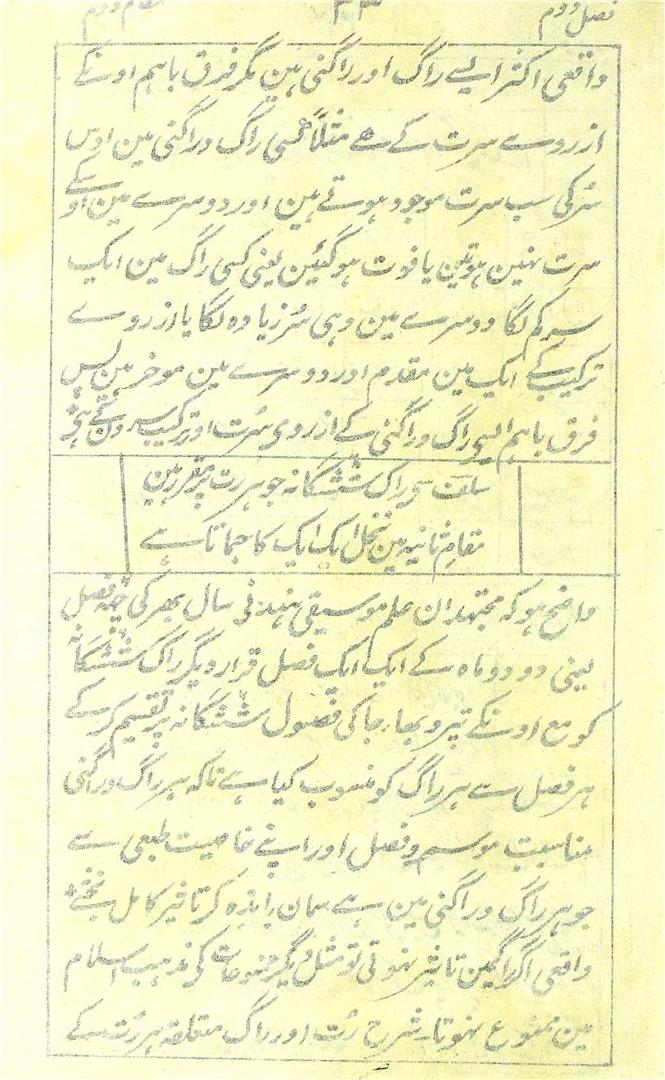 فصل دوم
واقعی اکثر ایسے راگ اور راگنی ہین مگر فرق باہم اونکے
از روے سرت کے ہے مثلاً کسی راگ و راگنی مین اوس
سُر کی سب سرت موجود ہوتے ہین اور دوسرے مین اوسکے
سرت نہین ہوتین یا فوت ہوگیئین یعنی کسی راگ مین ایک
سر کم لگا دوسرے مین وہی سُر زیادہ لگا یا از روے
ترکیب کے ایک مین مقدم اور دوسرے مین موخر ہین پس
فرق باہم ایسی راگ و راگنی کے از روی سُرت اور ترکیب
راگ ششگانہ جو ہر رت پر مقرر ہین
مقام ثانیہ مین ایک ایک کا
واضح ہو کہ مجتہدان علم موسیقی ہند نی سال بھر کی چھہ فصل
یعنی دو دو ماہ کے ایک ایک فصل قرار دیگر راگ ششگانہ
کو مع اونکے پتر و بھارجا کی فصول ششگانہ پر تقسیم کر کے
ہر فصل سے ہر راگ کو منسوب کیا ہے تاکہ ہر راگ و راگنی
مناسبت موسم و فصل اور اپنے خاصیت طبعی سے
جو ہر راگ و راگنی مین ہے سمان باندہ کر تاثیر کامل بخشے
واقعی اگر راگمین تاثیر نہوتی تو مثل دیگر ممنوعات کی مذہب اسلام
مین ممنوع نہوتا۔ شرح رُت اور راگ متعلقہ ہر رُت کے